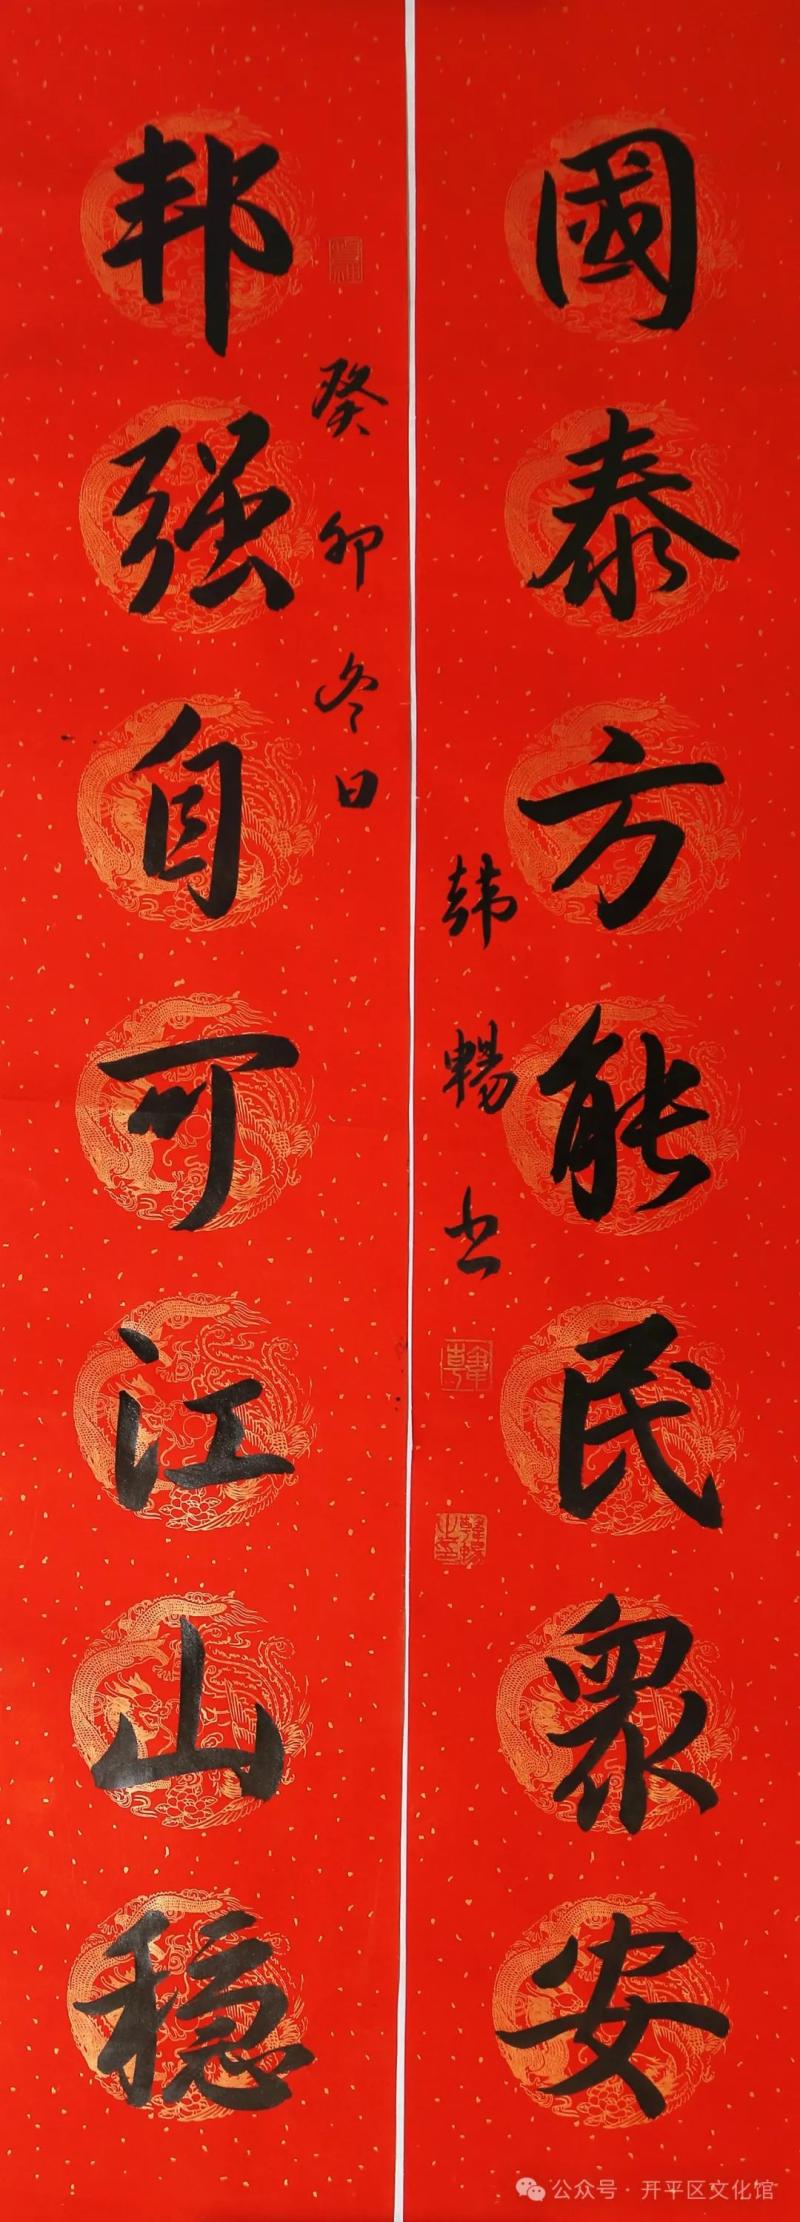 國泰方能民眾安
韩暢书
邦强自可江山稳
癸卯冬日
公众号·开平区文化馆